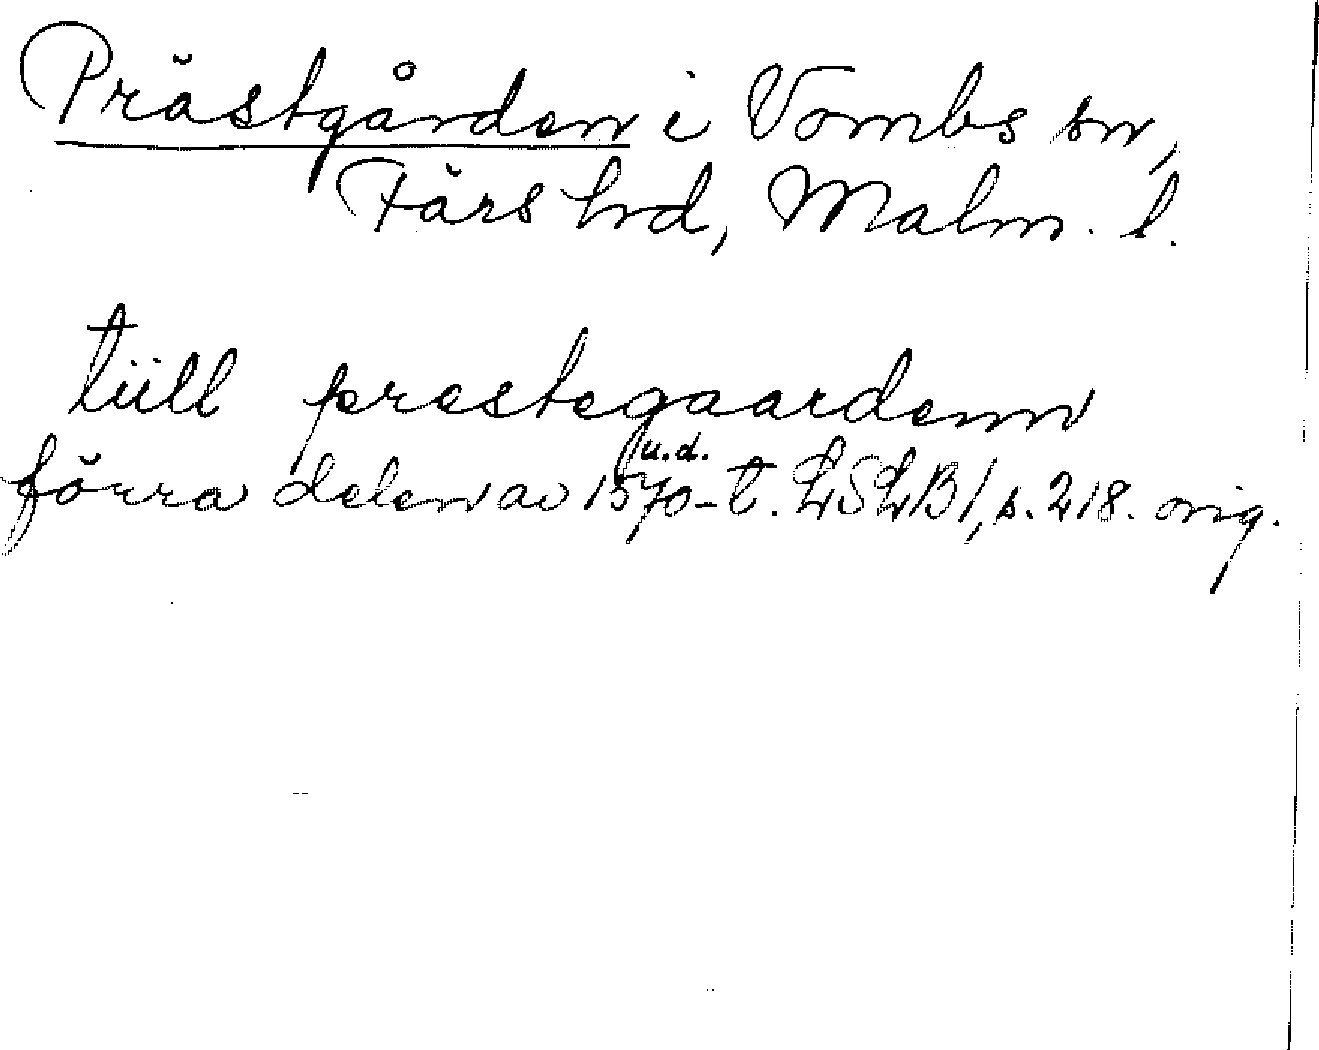 Prästgården i Vombs sn,
Färs hd, Malm. l.
tiill prestegaardenn
u.d.
förra delen av 1570-t. LSLB1, s. 218. orig.